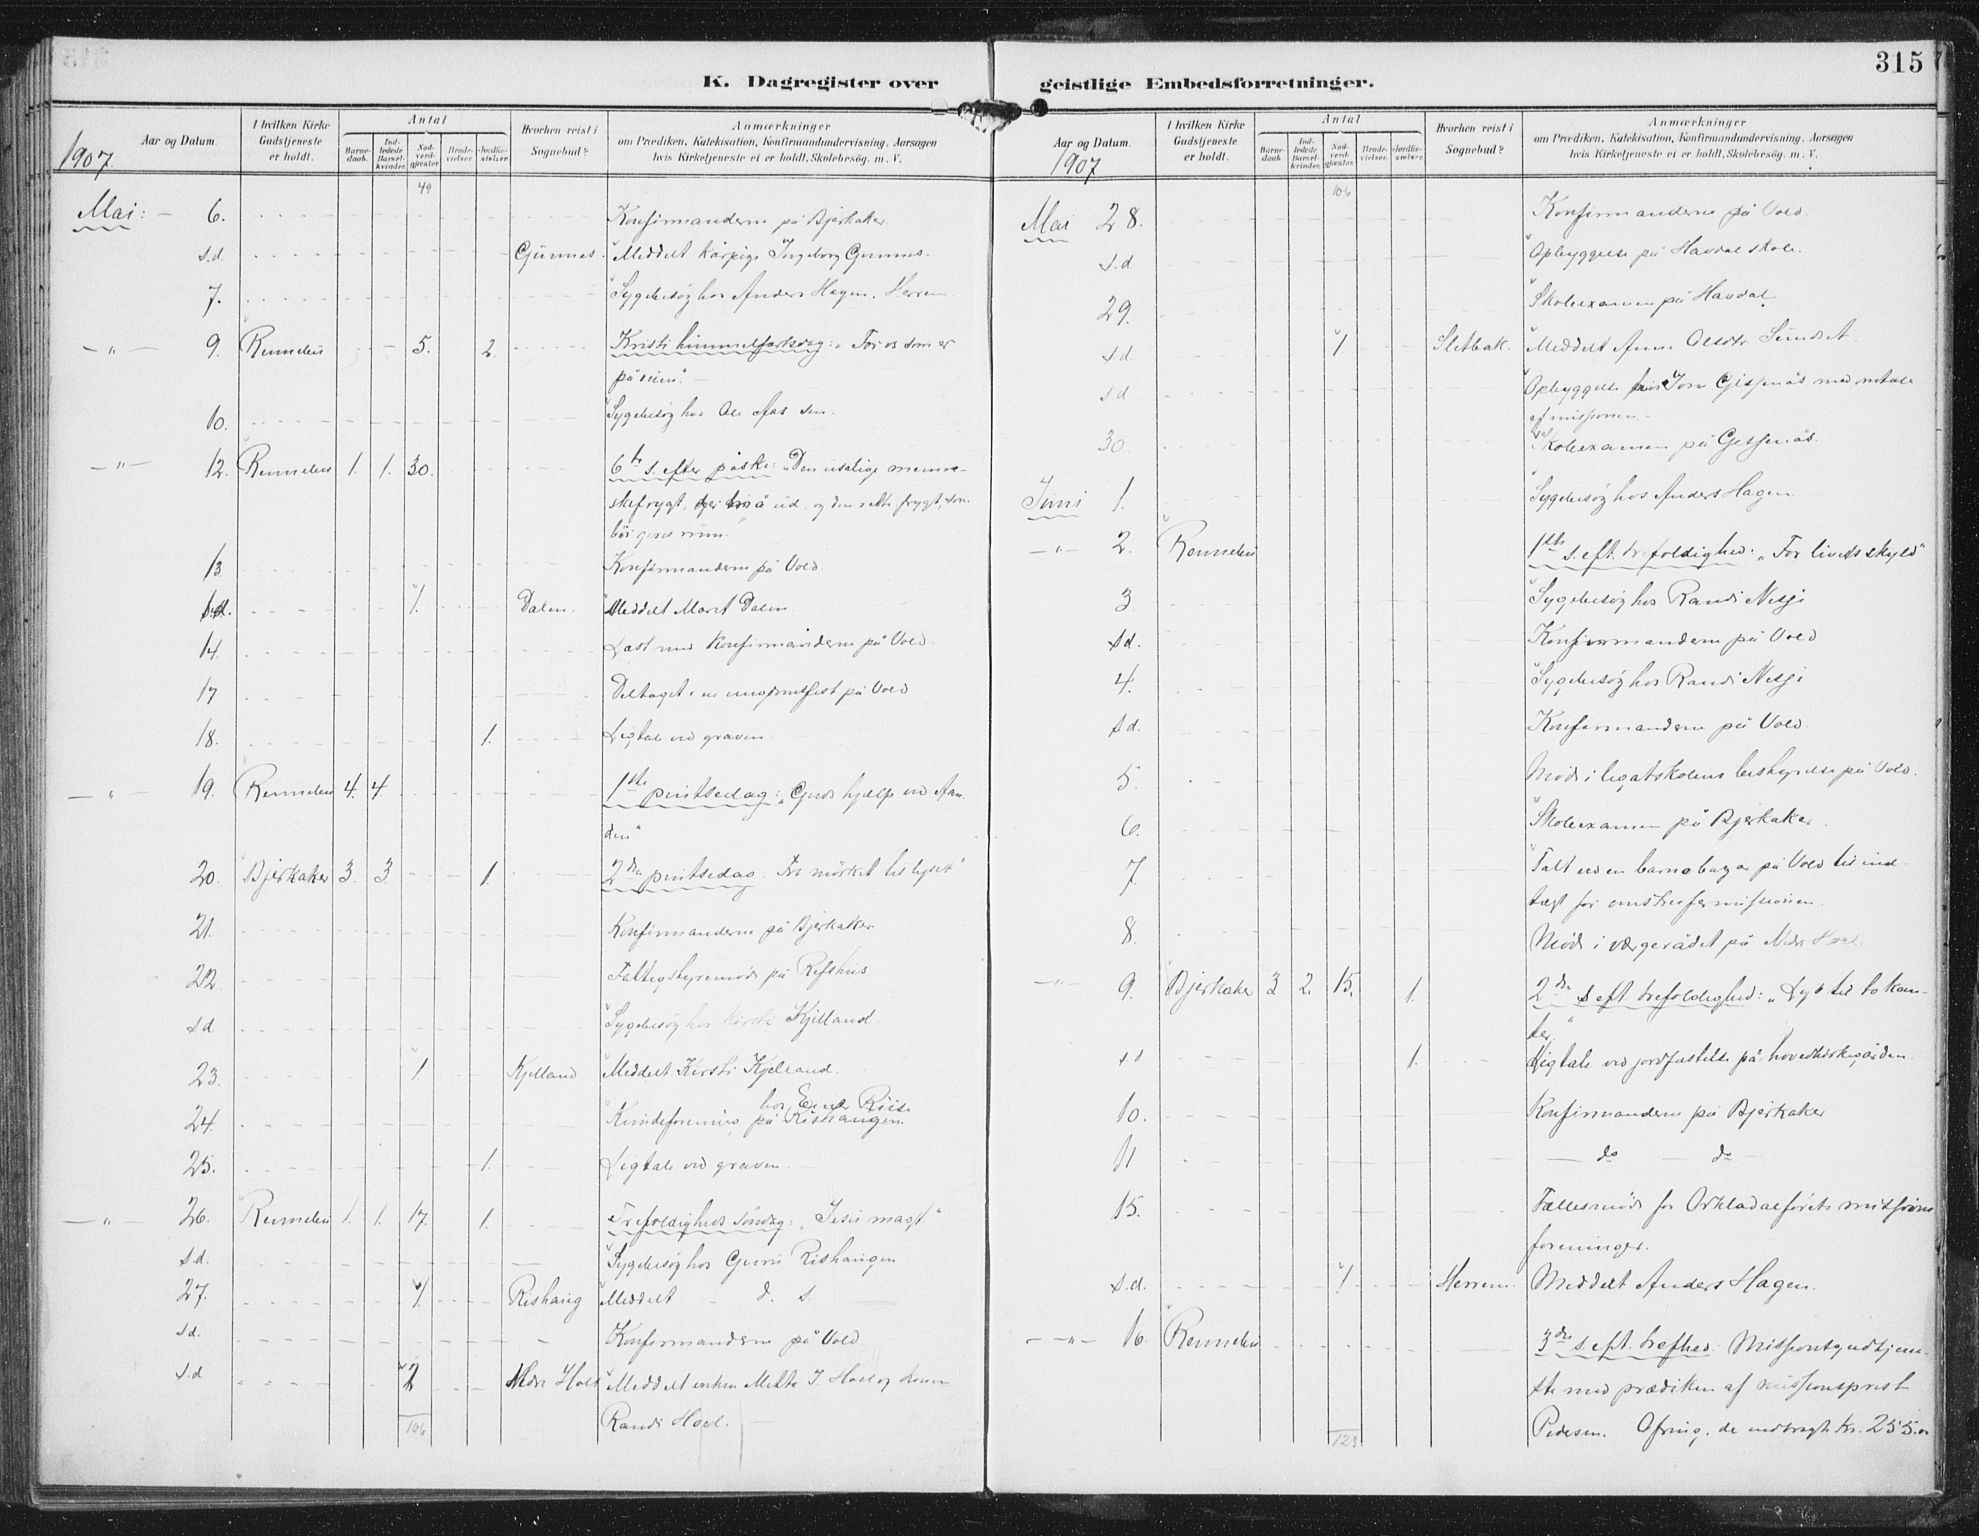 315
K. Dagregister over
geistlige Embedsforretninger.
Aar og Datum.
I hvilken Kirke Gudstjeneste er holdt.
Antal
Barne- daab.
Ind- ledede Barsel- kvinder.
Nad- verd- gjester.
Brude- vielser.
Jordfæ- stelser
Hvorhen reist i Sognebud?
Anmærkninger
om Prædiken, Katekisation, Konfirmandundervisning, Aarsagen
hvis Kirketjeneste ei er holdt, Skolebesøg. m. V.
1907.
49
Mai: — 6. Konfirmanderne på Bjerkaker
s.d. Gunnes. Meddelt kårpige Ingeborg Gunnes.
7. Sygebesøg hos Anders Hagen, Herrem
— " — 9. Rennebu 5. 2. Kristi himmelfartsdag: "For os som er
på veien." —
10. Sygebesøg hos Ole Aas sen.
— " — 12. Rennebu 1. 1. 30. 6te s. efter påske: "Den usalige menne-
skefrygt, der må ud, og den rette frygt, som
bør gives rum."
13. Konfirmanderne på Vold
s.d. 1. Dalen. Meddelt Marit Dalen
14. Læst med konfirmanderne på Vold.
17 Deltaget i en ungdomsfest på Vold
18. 1. Ligtale ved graven.
— " — 19. Rennebu 4. 4 1ste pintsedag: "Guds hjælp ved Aan-
den"
20. Bjerkaker 3. 3. 1. 2den pintsedag: Fra mørket til lyset"
21. Konfirmanderne på Bjerkaker
22. Fattigstyremøde på Refshus
s.d. Sygebesøg hos Kirsti Kjelland.
23. 1. Kjelland Meddelt Kirsti Kjelland.
hos Riise
24. Kvindeforening på Rishaugen.
25. 1. Ligtale ved graven.
— " — 26. Rennebu 1. 1. 17. 1. Trefoldigheds søndag: "Jesu magt."
s.d. Sygebesøg hos Guru Rishaugen
27. 1. Rishaug Meddelt — d. s. —
s.d. Konfirmanderne på Vold
s.d 2 Nedre Hoel Meddelt enken Mekta J. Hoel og konen
106 Randi Hoel.
Aar og Datum.
I hvilken Kirke Gudstjeneste er holdt.
Antal
Barne- daab.
Ind- ledede Barsel- kvinder.
Nad- verd- gjester.
Brude- vielser.
Jordfæ- stelser.
Hvorhen reist i Sognebud?
Anmærkninger
om Prædiken, Katekisation, Konfirmandundervisning, Aarsagen
hvis Kirketjeneste ei er holdt, Skolebesøg. m. V.
1907
106
Mai 28. Konfirmanderne på Vold
s.d Opbyggelse på Havdal skole.
29. Skoleexamen på Havdal.
s.d 1 Sletbak. Meddelt Anne Olsdtr Sundset.
s.d Opbyggelse hos Jon Gisnås med omtale
af missionen. —
30 Skoleexamen på Gisnås.
Juni 1. Sygebesøg hos Anders Hagen
— " — 2. Rennebu 1ste s. eft. trefoldighed: "For livets skyld"
3 Sygebesøg hos Randi Nesje
s.d. Konfirmanderne på Vold
4. Sygebesøg hos Randi Nesje
s.d. Konfirmanderne på Vold
5. Møde i legatskolens bestyrelse på Vold.
6. Skoleexamen på Bjerkaker.
7. Talt ved en barnebazar på Vold til ind-
tægt for omstreifermissionen.
8. Møde i værgerådet på Nedre Hoel.
— " — 9. Bjerkaker 3 2. 15. 1. 2den s eft. trefoldighed: "Lys til to kan-
ter"
s.d 1. Ligtale ved jordfæstelse på hovedkirkegården.
10. Konfirmanderne på Bjerkaker
11 — do — do
15. Fællesmøde for Orkladalførets missions
foreninger.
s.d. 1 Herrem. Meddelt Anders Hagen.
— " — 16. Rennebu 3die s. eft. trefhed: Missionsgudstjene-
ste med prædiken af missionsprest
123 Pedersen. Ofring, de indbragte kr. 255.00